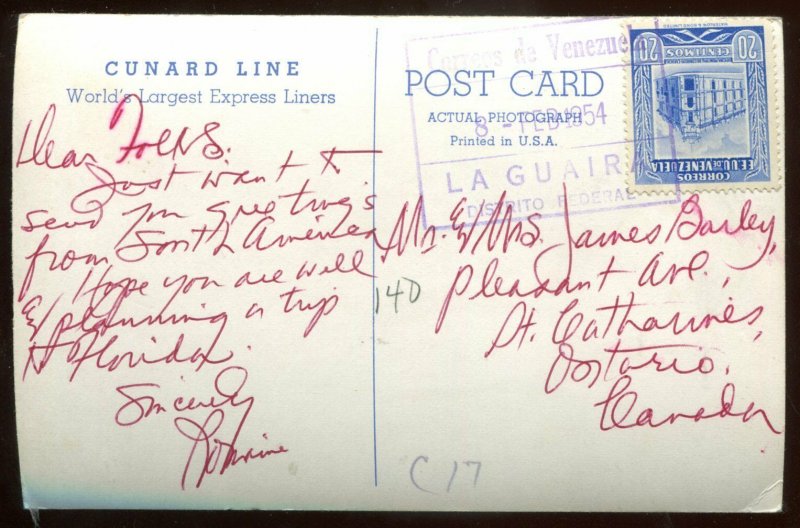 CUNARD LINE
World's Largest Express Liners
Dear Folks.
Just want to
send you greetings
from South America
Hope you are well
& planning a trip
to Florida.
Sincerely
POST CARD
ACTUAL PHOTOGRAPH
Printed in U.S.A.
Correos de Venezuela
8 - FEB 1954
LA GUAIRA
DISTRITO FEDERAL
WATERLOW & SONS LIMITED
20 CENTIMOS 20
EE.UU. DE VENEZUELA
CORREOS
Mr. & Mrs. James Barley,
Pleasant Ave.,
St. Catharines,
Ontario.
Canada
140
C 17